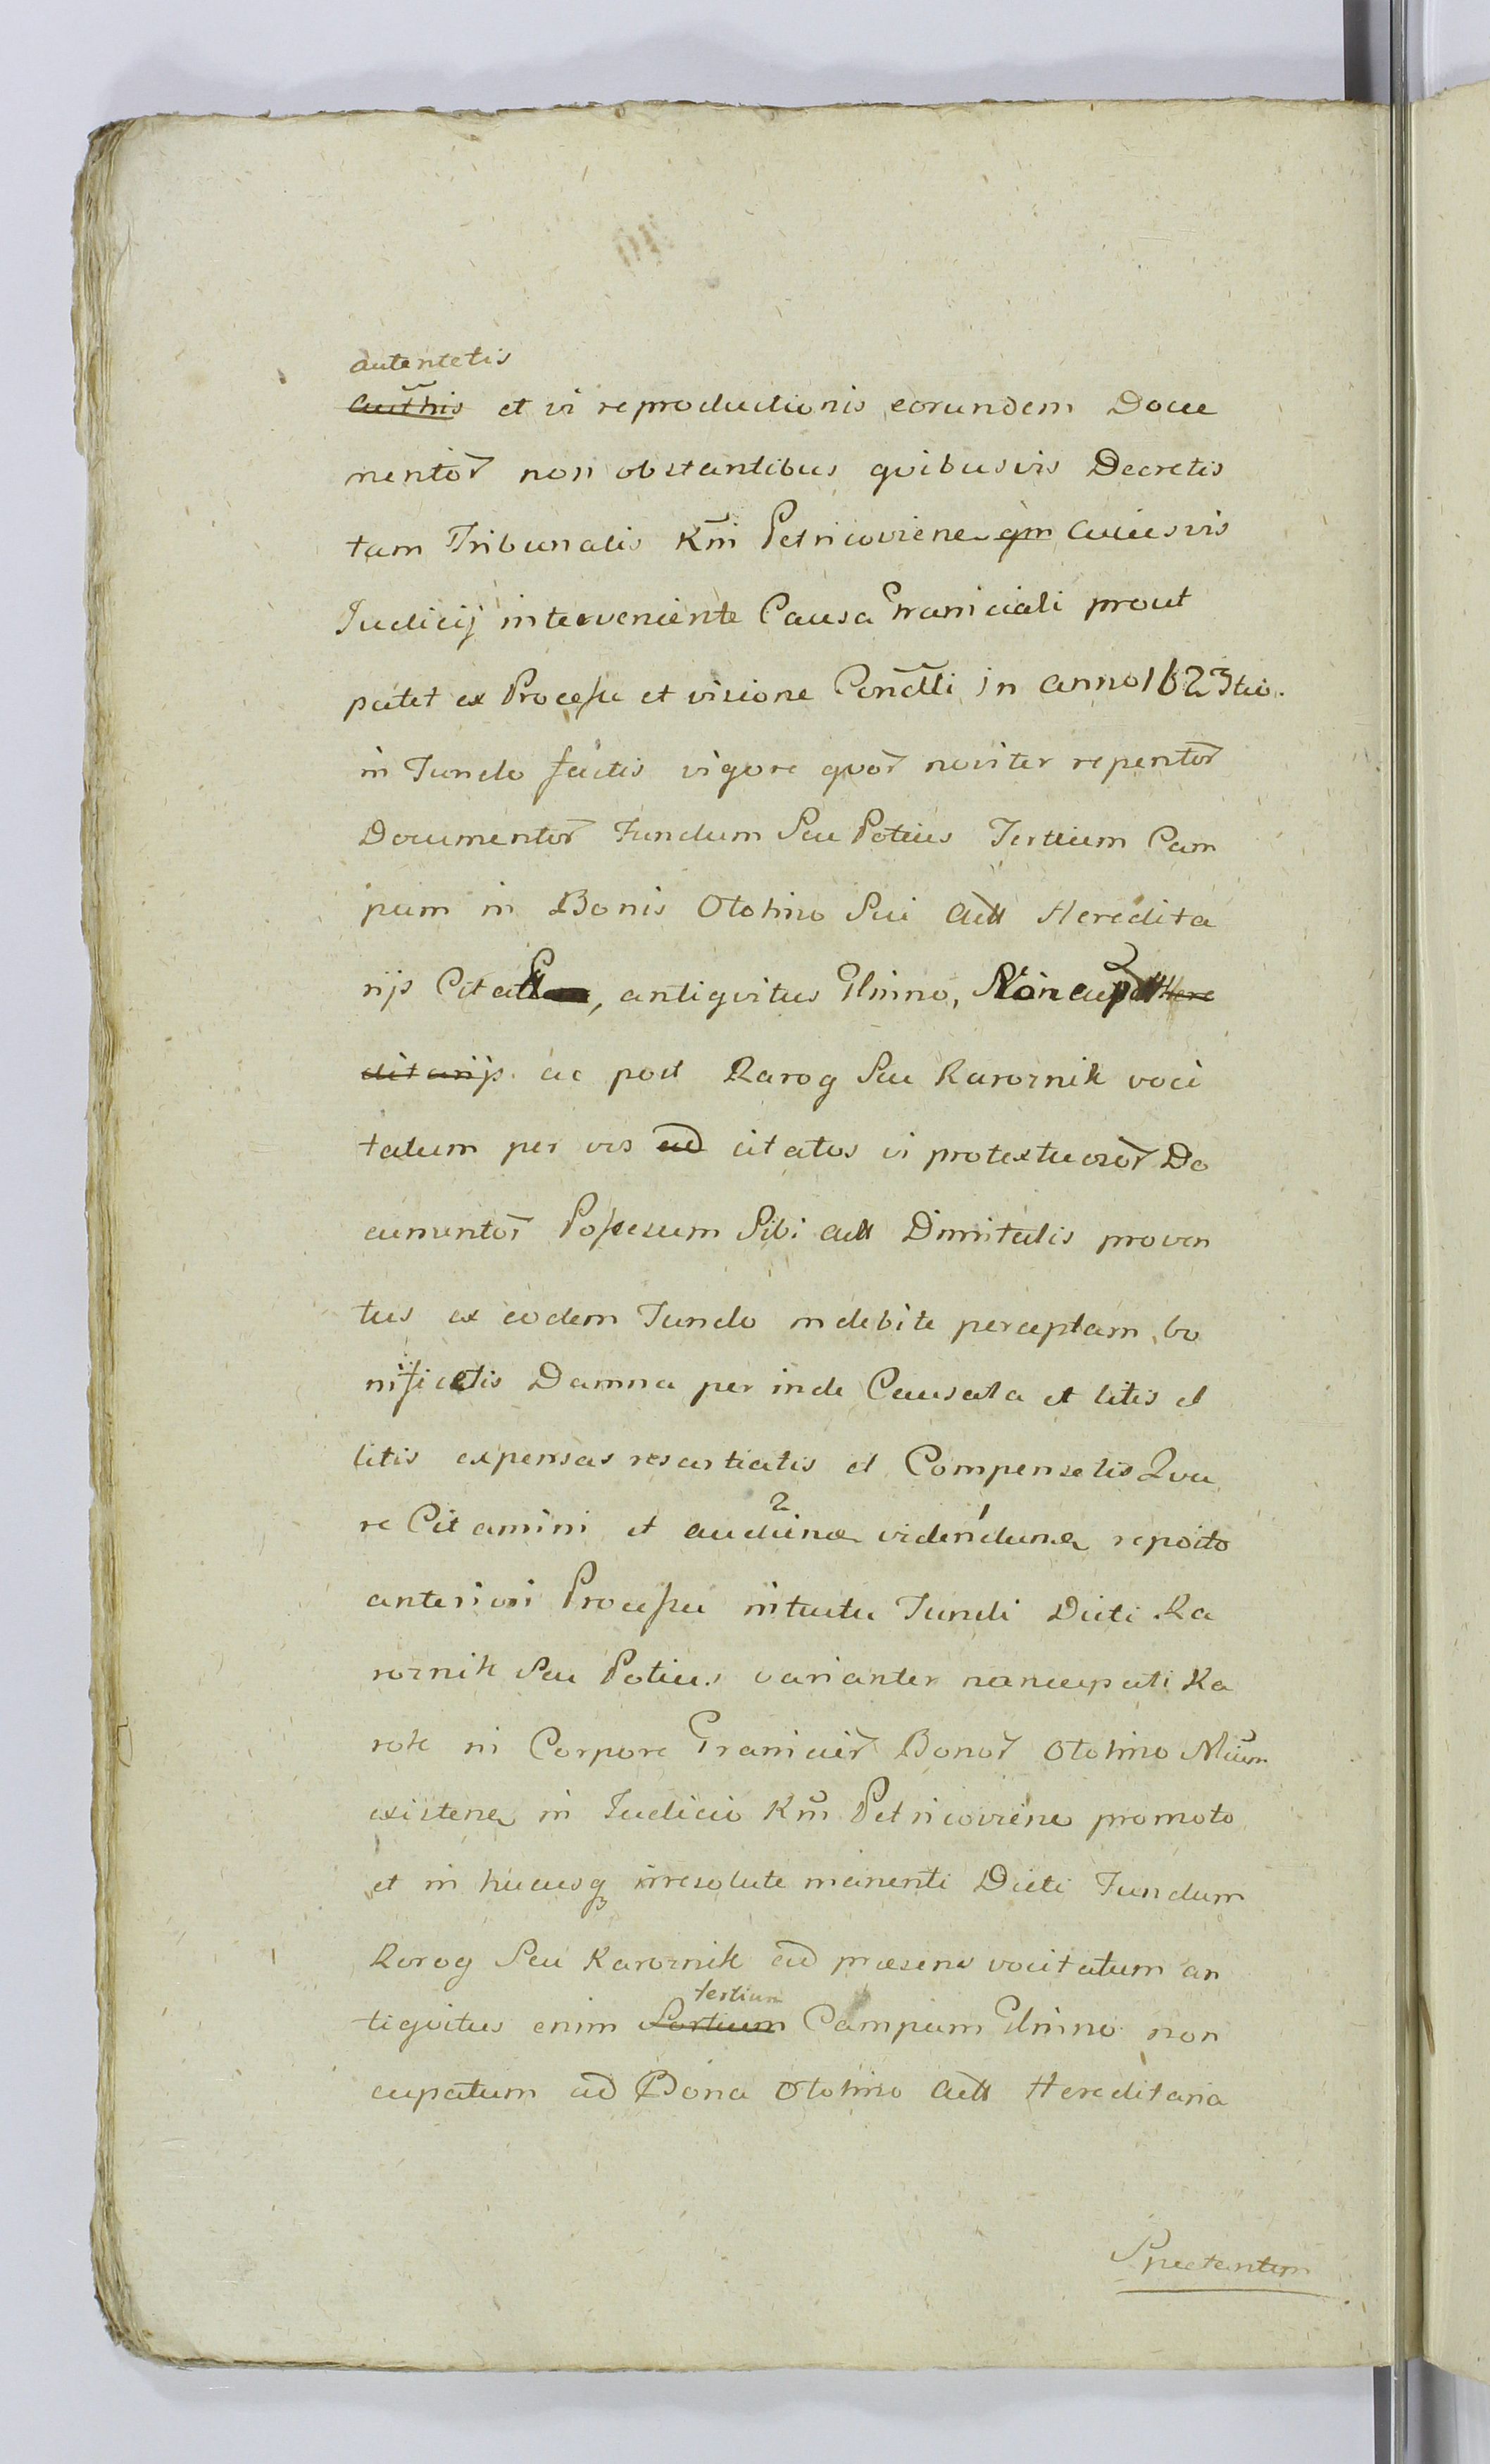 autentetis
authis et vi reproductionis eorundem Docu
mentor̃ non obstantibus quibusvis Decretis
tam Tribunalis Km̃i Petricovienę qm cuiusvis
Iudicij interveniente Causa Graniciali prout
patet ex Processu et visione Condlli in anno 1623tio.
in Fundo factis vigore quor̃ noviter repertor̃
Documentor̃ Fundum Seu Potius Tertium Cam
pum in Bonis Otolino Sui Actt Heredita
rijs Citatt, antiquitus Glinno, Noncupatt Here
ditarijs ac post Rarog Seu Raroznik voci
tatum per vos ad citatos vi protextuosor̃ Do
cumentor̃ Possesum Sibi actt Dimitatis proven
tus ex eodem Fundo indebite perceptam bo
nificetis Damna per inde Causata et litis et
litis expensas resartiatis et Compensetis Qua
re Citamini et audienę 2 videndumę 1 reposito
anteriori Processu intuitu Fundi Dicti Ra
roznik Seu Potius varianter nancupati Ra
rok in Corpore Granicier̃ Bonor̃ Otolino
existenę in Iudicio Km̃ Petricovienę promoto
et in hucusq irresolute manenti Dicti Fundum
Rorog Seu Raroznik ad præsens vocitatum an
tertium
tiquitus enim Sortium Campum Glinno non
cupatum ad Bona Otolino Actt Hereditaria
Spectantem